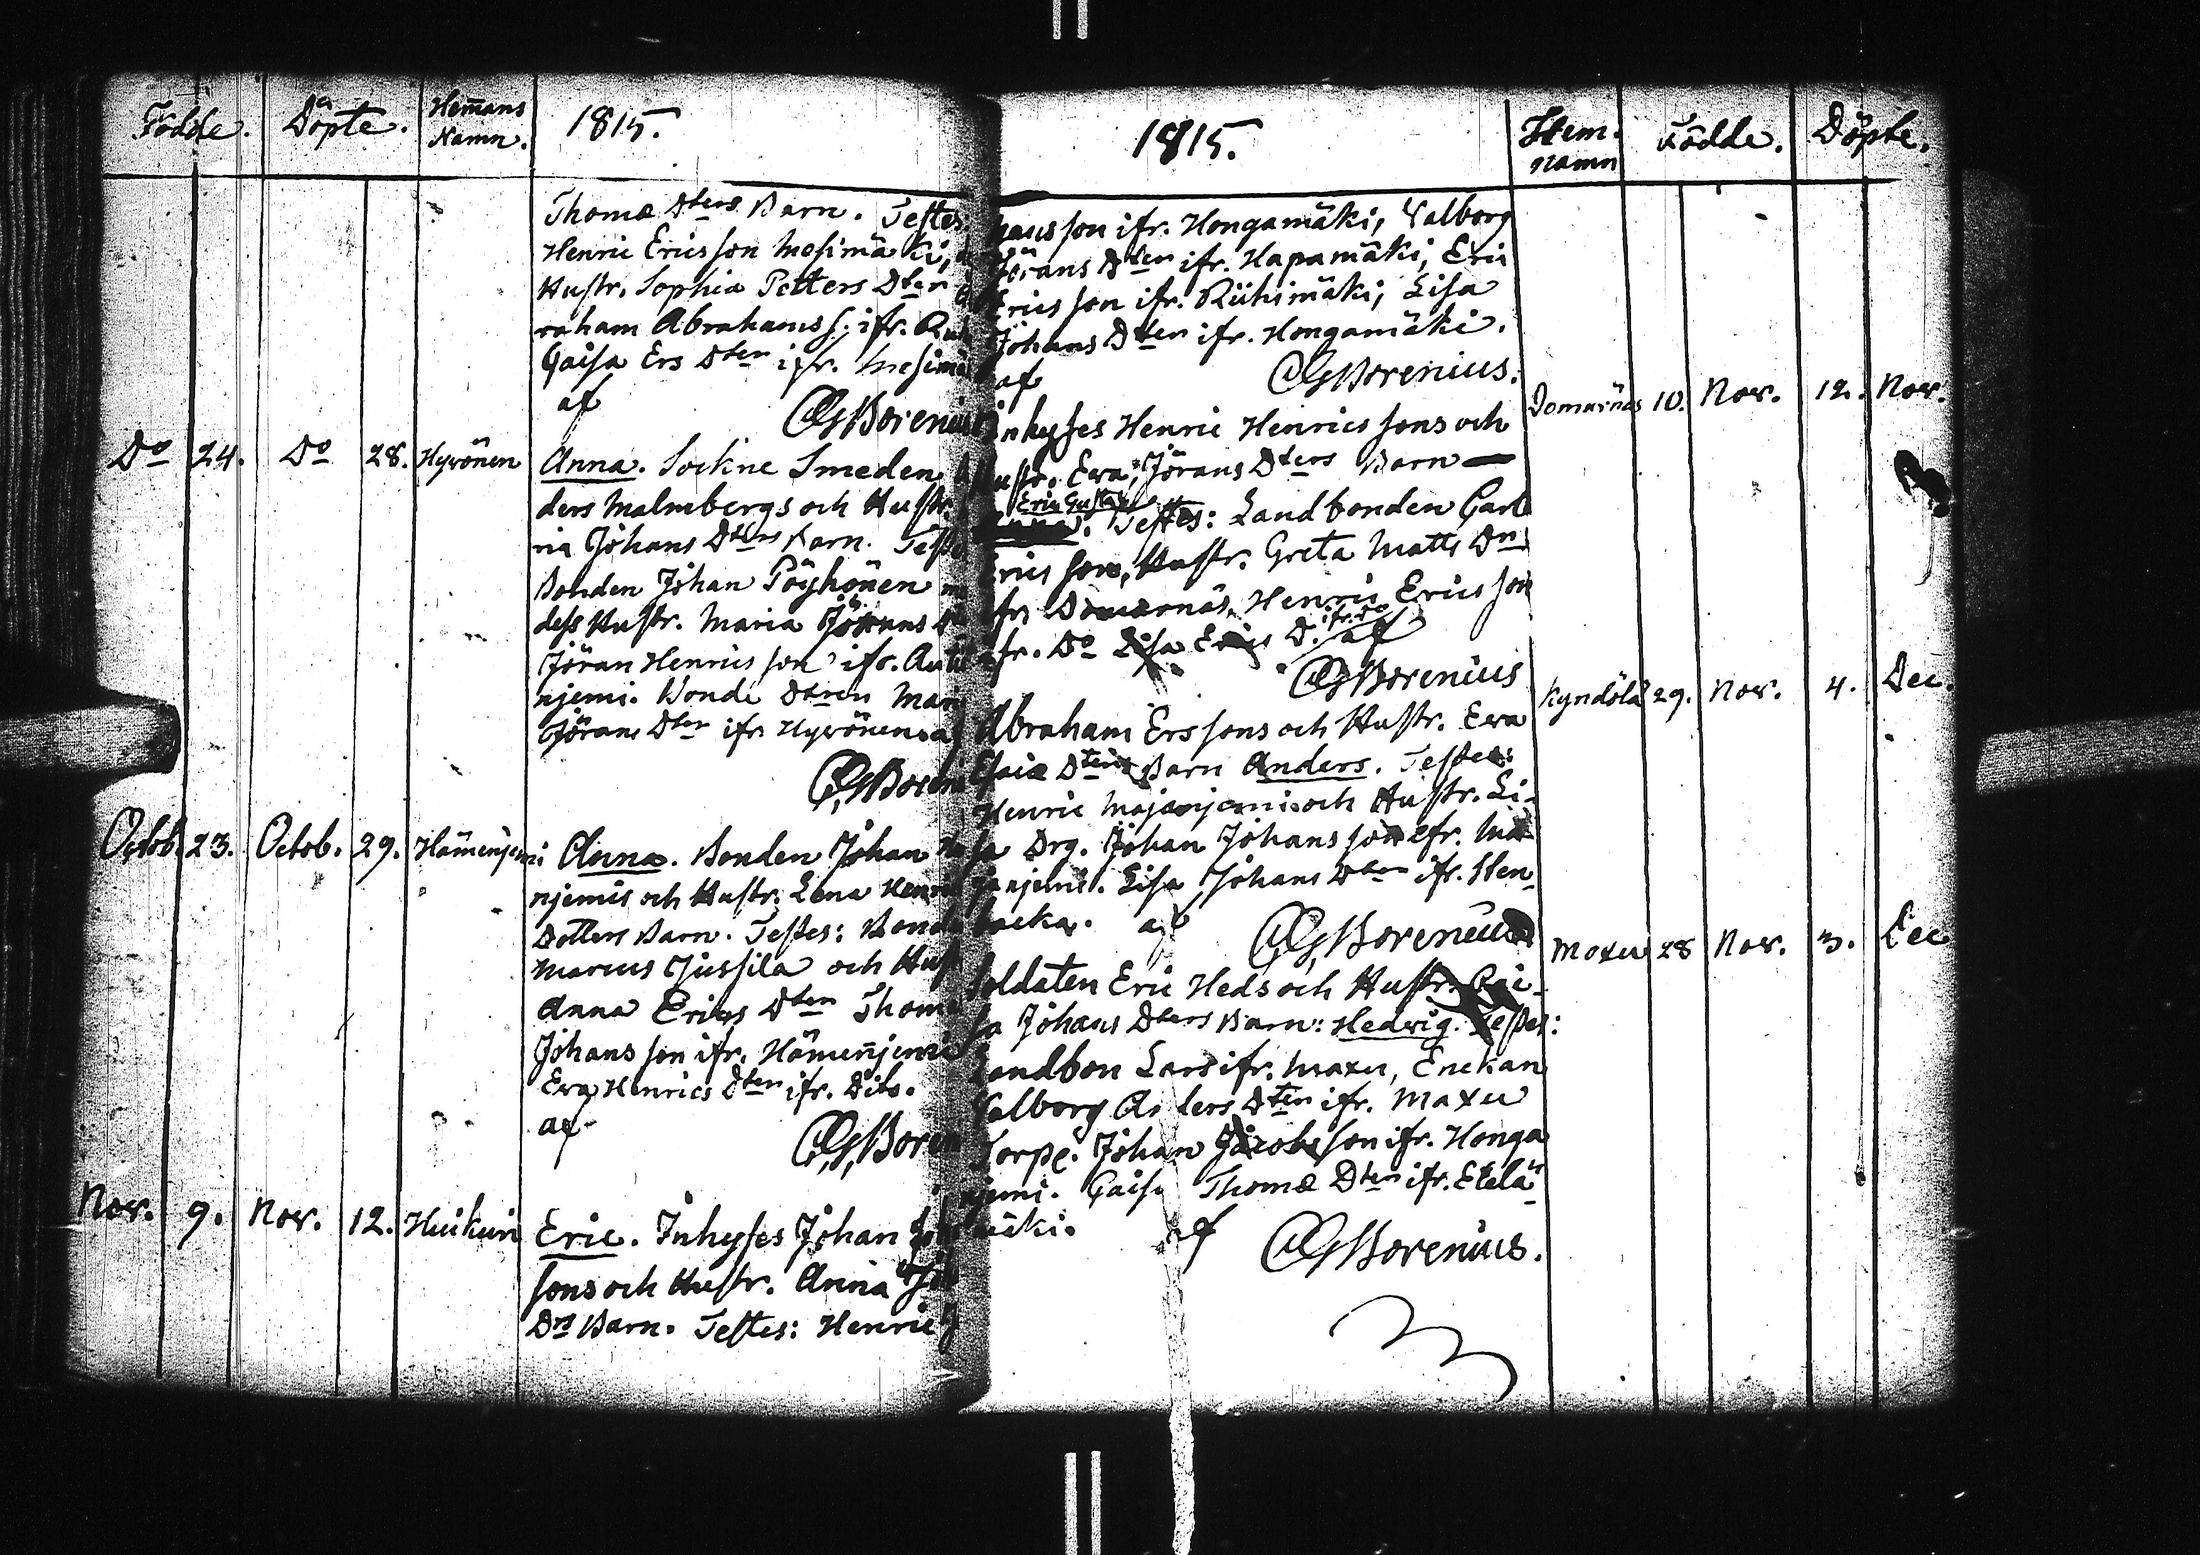 Födde. Döpte. Hemans Namn. 1815.
Thomæ Dters Barn. Testes:
Henric Ericsson Mesimäki,
Hustr. Sophia Petters Dter
raham Abrahamss. ifr.
Caisa Ers Dter ifr. Mesimä
af
CGBorenius
Do 24. Do 28. Hyvönen Anna. Sockne Smeden
ders Malmbergs och Hustr.
ria Johans Dters Barn. Teste
Bonden Johan Pöyhönen
dess Hustr. Maria
Jöran Henricsson ifr.
njemi. Bonde Dtren Mari
Görans Dter ifr Hyvönen
CGBoreni
Octob. 23. Octob. 29. Hämenjemi Anna. Bonden Johan
njemis och Hustr. Lena Henri
Dotters Barn. Testes: Bonde
Marcus Jussila och Hust
Anna Erics Dter Thom
Johansson ifr. Hämenjemi
Eva Henrics Dter ifr. Dito.
af
CGBoren
Nov. 9. Nov. 12. Huikuri Eric. Inhyses Johan
sons och Hustr. Anna
Drs Barn. Testes: Henric
1815. Hem. Namn Födde. Döpte.
hansson ifr. Hongamäki, Valborg
Jörans Dter ifr. Hapamäki, Eric
Ericsson ifr. Riihimäki, Lisa
Johans Dter ifr. Hongamäki.
af CGBorenius.
Inhyses Henric Henricssons och Domarnäs 10. Nov. 12. Nov.
Hustr. Eva Jörans Dters Barn
Eric Gustav
Testes: Landbonden Carl
Ericsson, Hustr. Greta Matts Dr
ifr. Domarnäs, Henric Ericsson
ifr. Do Lisa Erics D. ifr. Do af
CGBorenius
Abraham Erssons och Hustr. Eva Kyndölä 29. Nov. 4. Dec.
Esaiæ Dters Barn Anders. Testes:
Henric Majanjemi och Hustr. Li-
sa Drg. Johan Johansson ifr. Ma
janjemi. Lisa Johans Dter ifr. Sten-
backa. af CGBorenius
Soldaten Eric Heds och Hustr. Cai- Moxu 28 Nov. 3. Dec
sa Johans Dters Barn: Hedvig. Testes:
Landbon Lars ifr. Maxu, Enckan
Valborg Anders Dter ifr. Maxu
Torpe. Johan Jacobsson ifr. Honga
njemi. Caisa Thomæ Dter ifr. Etelä-
mäki. af CGBorenius.